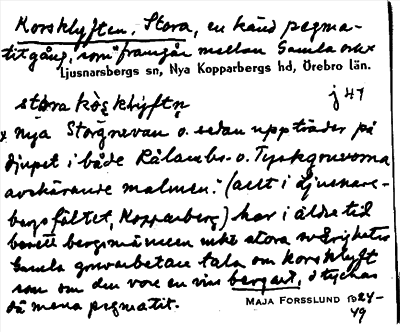 Korsklyften, Stora, en känd pegma-
titgång, som "framgår mellan Gamla och
Ljusnarsbergs sn, Nya Kopparbergs hd, Örebro län.
stora
j 47
Nya Storgruvan o. sedan uppträder på
djupet i både Rålambs- o. Tyskgruvorna
avskärande malmen." (allt i Ljusnars-
bergsfältet, Kopparberg) har i äldre tid
berett bergsmännen mkt stora svårigheter
Gamla gruvarbetare tala om korsklyft
som om den vore en viss bergart, o tyckas
då mena pegmatit.
MAJA FORSSLUND 1924-
49